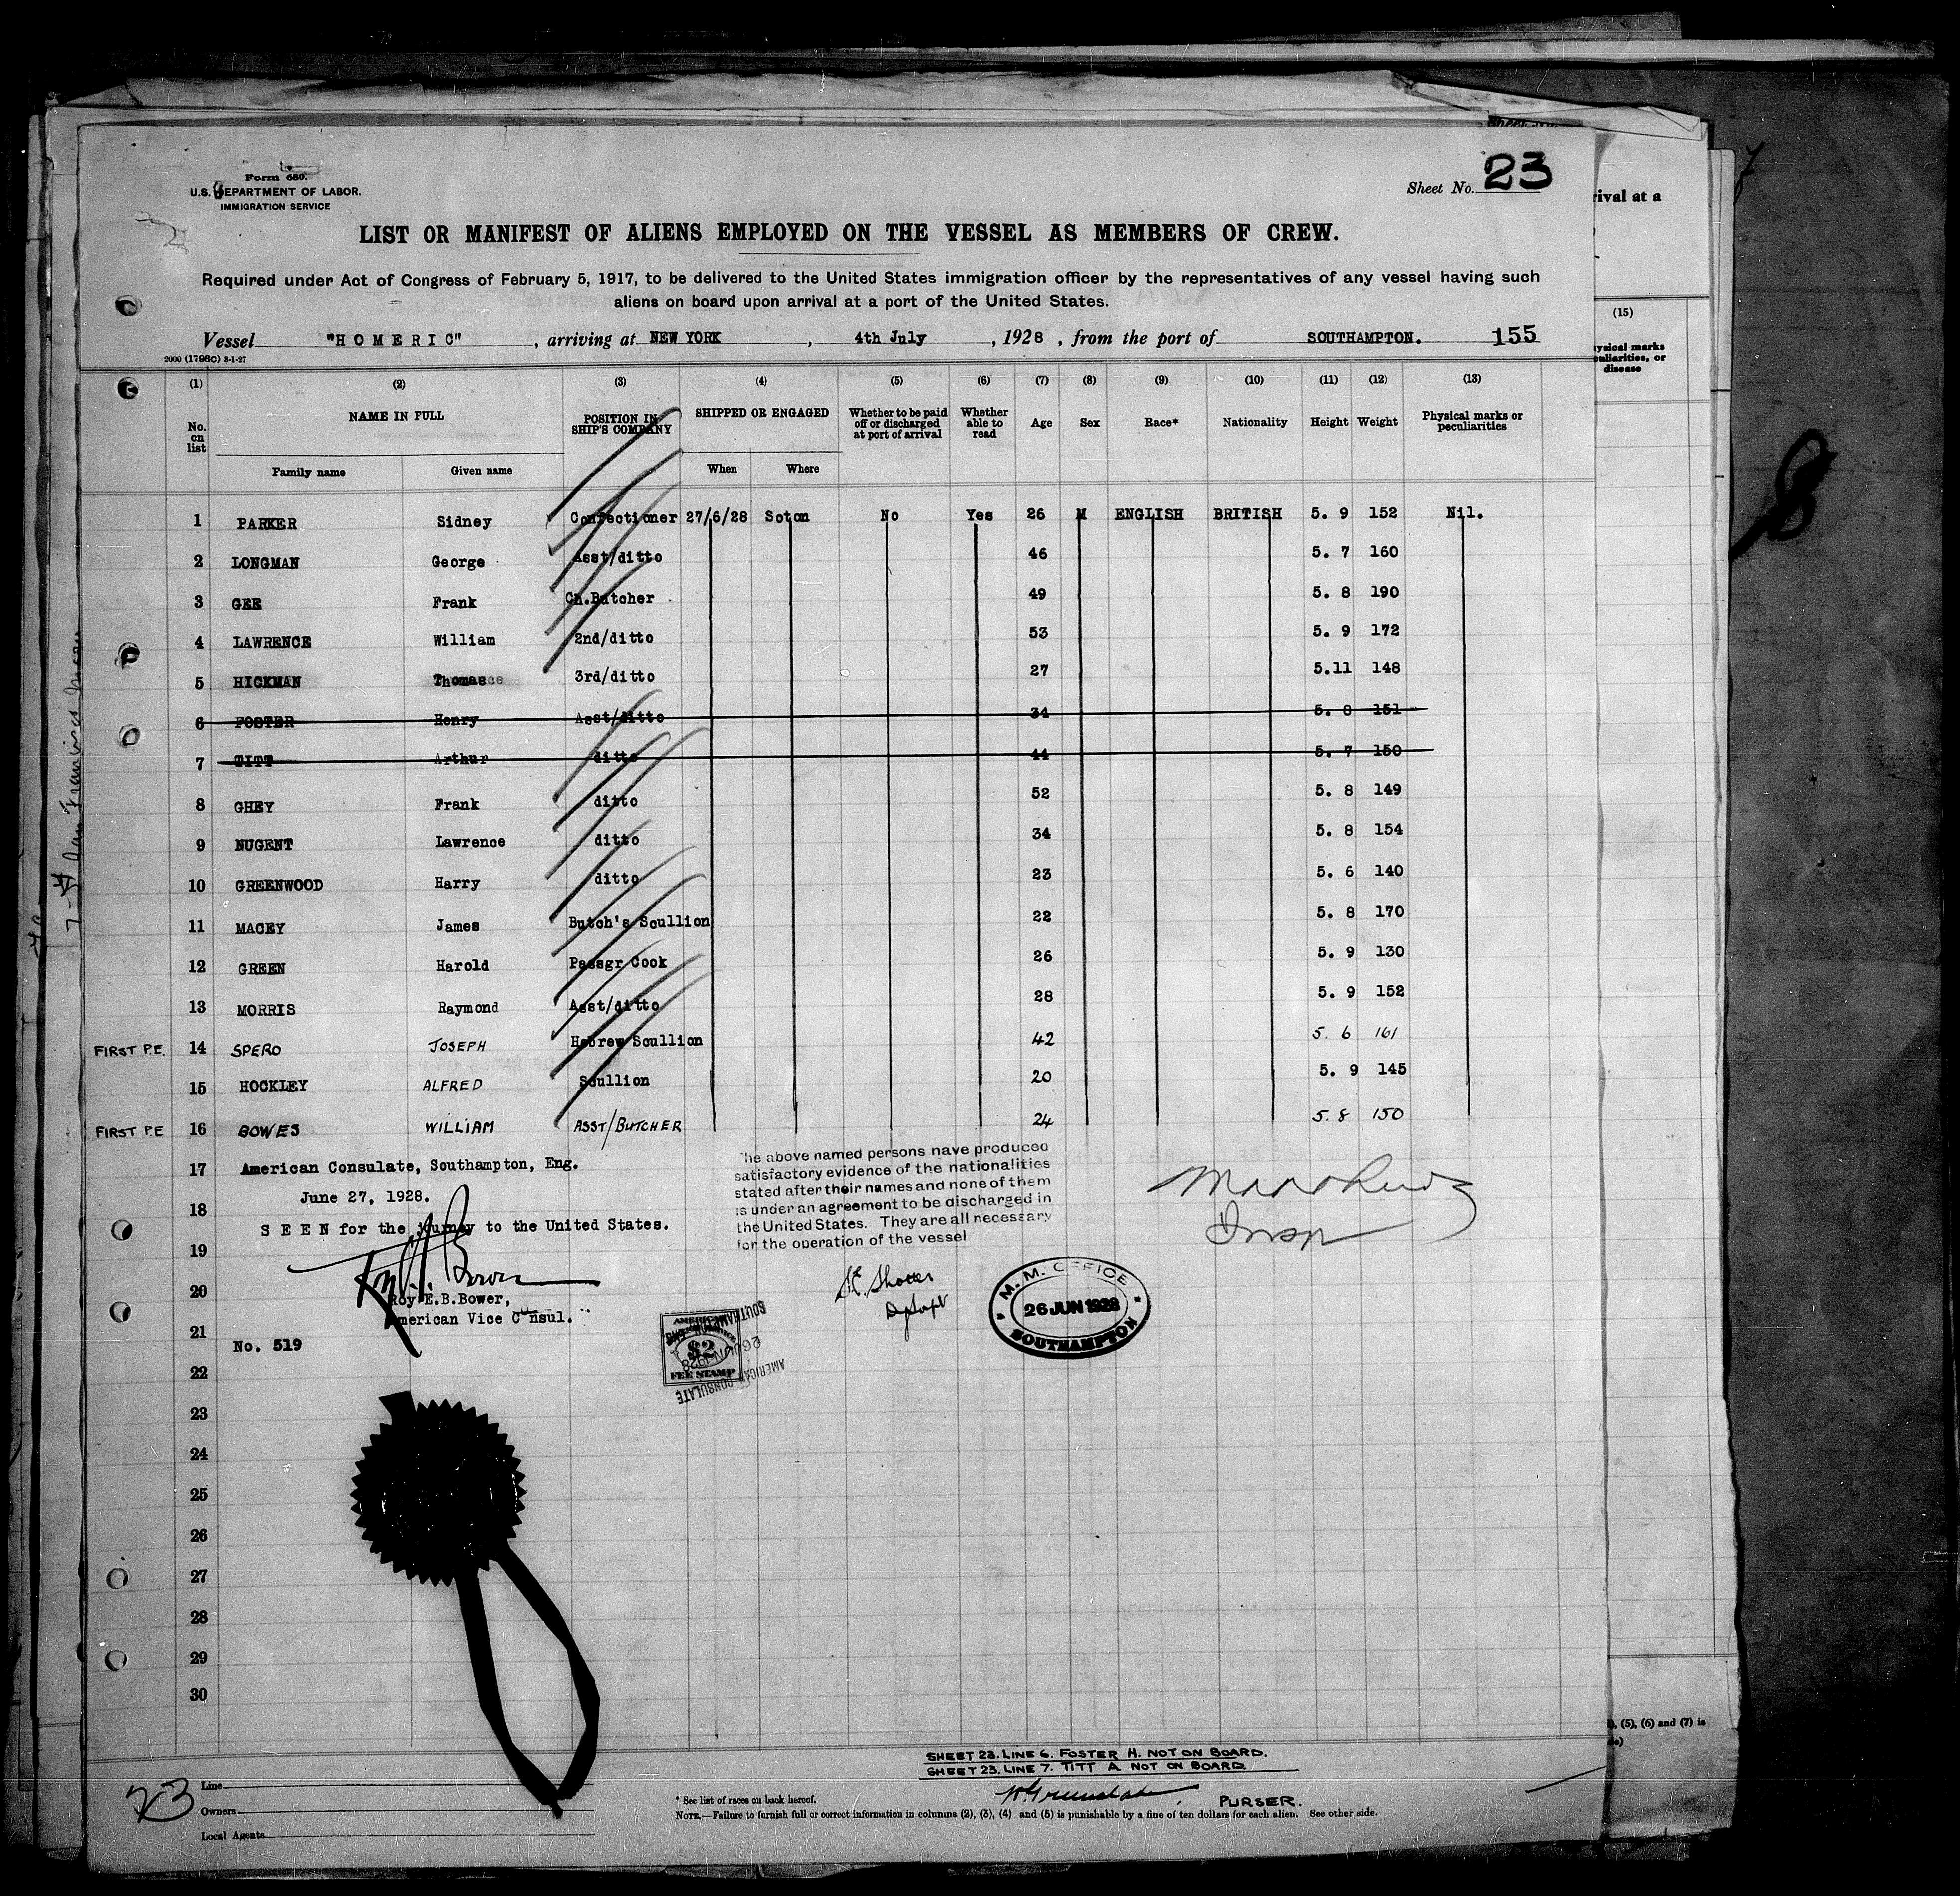 Form 680.
U.S. DEPARTMENT OF LABOR.
IMMIGRATION SERVICE
Sheet No. 23
LIST OR MANIFEST OF ALIENS EMPLOYED ON THE VESSEL AS MEMBERS OF CREW.
Required under Act of Congress of February 5, 1917, to be delivered to the United States immigration officer by the representatives of any vessel having such
aliens on board upon arrival at a port of the United States.
Vessel "HOMERIC", arriving at NEW YORK, 4th July, 1928, from the port of SOUTHAMPTON. 155
2000 (1798C) 3-1-27
(1) (2) (3) (4) (5) (6) (7) (8) (9) (10) (11) (12) (13)
No. on list NAME IN FULL POSITION IN SHIP'S COMPANY SHIPPED OR ENGAGED Whether to be paid off or discharged at port of arrival Whether able to read Age Sex Race* Nationality Height Weight Physical marks or peculiarities
Family name Given name When Where
1 PARKER Sidney Confectioner 27/6/28 Soton No Yes 26 M ENGLISH BRITISH 5. 9 152 Nil.
2 LONGMAN George Asst/ditto 46 5. 7 160
3 GEE Frank Ch.Butcher 49 5. 8 190
4 LAWRENCE William 2nd/ditto 53 5. 9 172
5 HICKMAN Thomas 3rd/ditto 27 5.11 148
6 FOSTER Henry Asst/ditto 34 5. 8 151
7 TITT Arthur ditto 44 5. 7 150
8 GHEY Frank ditto 52 5. 8 149
9 NUGENT Lawrence ditto 34 5. 8 154
10 GREENWOOD Harry ditto 23 5. 6 140
11 MACEY James Butch's Scullion 22 5. 8 170
12 GREEN Harold Passgr Cook 26 5. 9 130
13 MORRIS Raymond Asst/ditto 28 5. 9 152
FIRST P.E. 14 SPERO JOSEPH Hebrew Scullion 42 5. 6 161
15 HOCKLEY ALFRED Scullion 20 5. 9 145
FIRST P.E 16 BOWES WILLIAM ASST/BUTCHER 24 5. 8 150
17 American Consulate, Southampton, Eng.
June 27, 1928.
18
S E E N for the journey to the United States.
19
20
Roy E.B.Bower,
American Vice Consul.
21
No. 519
22
23
24
25
26
27
28
29
30
The above named persons have produced
satisfactory evidence of the nationalities
stated after their names and none of them
is under an agreement to be discharged in
the United States. They are all necessary
for the operation of the vessel
Insp
M. M. OFFICE
26 JUN 1928
SOUTHAMPTON
AMERICAN
$2
FEE STAMP
AMERICAN CONSULATE
26 JUN 1928
SOUTHAMPTON, ENG.
SHEET 23. LINE 6. FOSTER H. NOT ON BOARD.
SHEET 23. LINE 7. TITT A. NOT ON BOARD.
PURSER.
23
Line
Owners
Local Agents
* See list of races on back hereof.
NOTE.—Failure to furnish full or correct information in columns (2), (3), (4) and (5) is punishable by a fine of ten dollars for each alien. See other side.
rival at a
(15)
ysical marks
culiarities, or
disease
, (5), (6) and (7) is